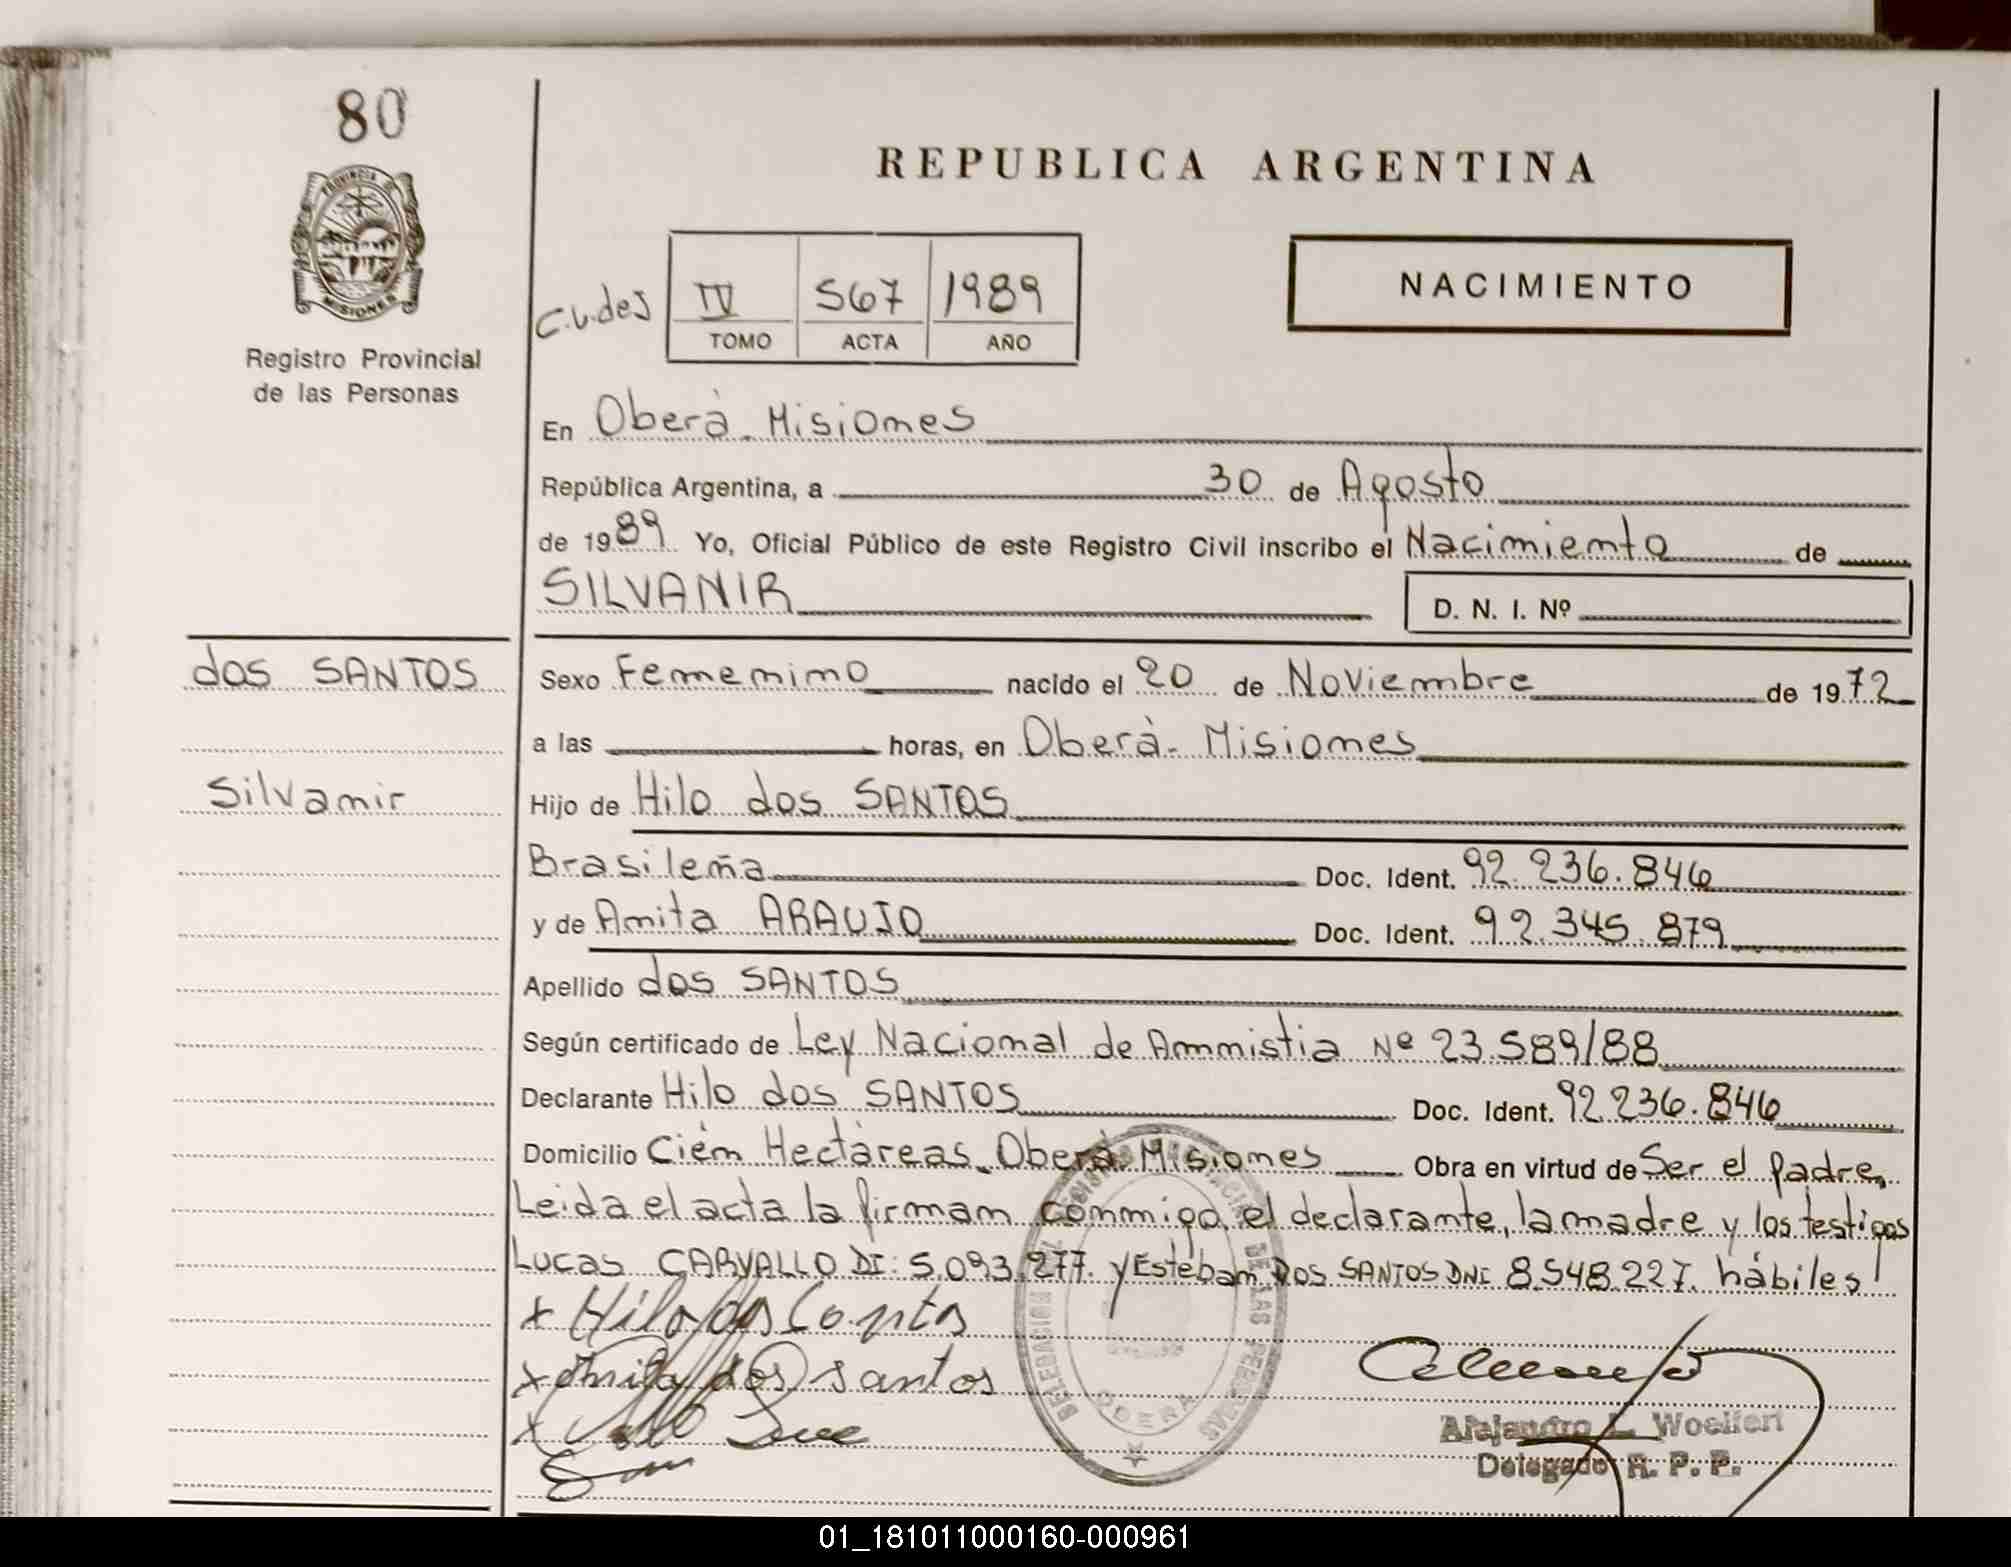 80
PROVINCIA DE
MISIONES
Registro Provincial
de las Personas
REPUBLICA ARGENTINA
NACIMIENTO
IV 567 1989
TOMO ACTA AÑO
En Oberà - Misiones
República Argentina, a 30 de Agosto
de 1989 Yo, Oficial Público de este Registro Civil inscribo el Nacimiento de
SILVANIR D. N. I. Nº
dos SANTOS
Silvanir
Sexo Femenino nacido el 20 de Noviembre de 1972
a las horas, en Oberà - Misiones
Hijo de Hilo dos SANTOS
Brasileña Doc. Ident. 92.236.846
y de Anita ARAUJO Doc. Ident. 92.345.879
Apellido dos SANTOS
Según certificado de Ley Nacional de Amnistia Nº 23.589/88
Declarante Hilo dos SANTOS Doc. Ident. 92.236.846
Domicilio Cién Hectàreas - Oberà - Misiones Obra en virtud de Ser el padre,
Leida el acta la firman conmigo el declarante, la madre y los testigos
Lucas CARVALLO DI: 5.093.277. y Estéban DOS SANTOS DNI 8.548.227. hábiles
x Hilo dos Santos
x Anita dos Santos
x
DELEGACION
DE LAS PERSONAS
OBERA
Alejandro L. Woelfert
Delegado R. P. P.
01_181011000160-000961